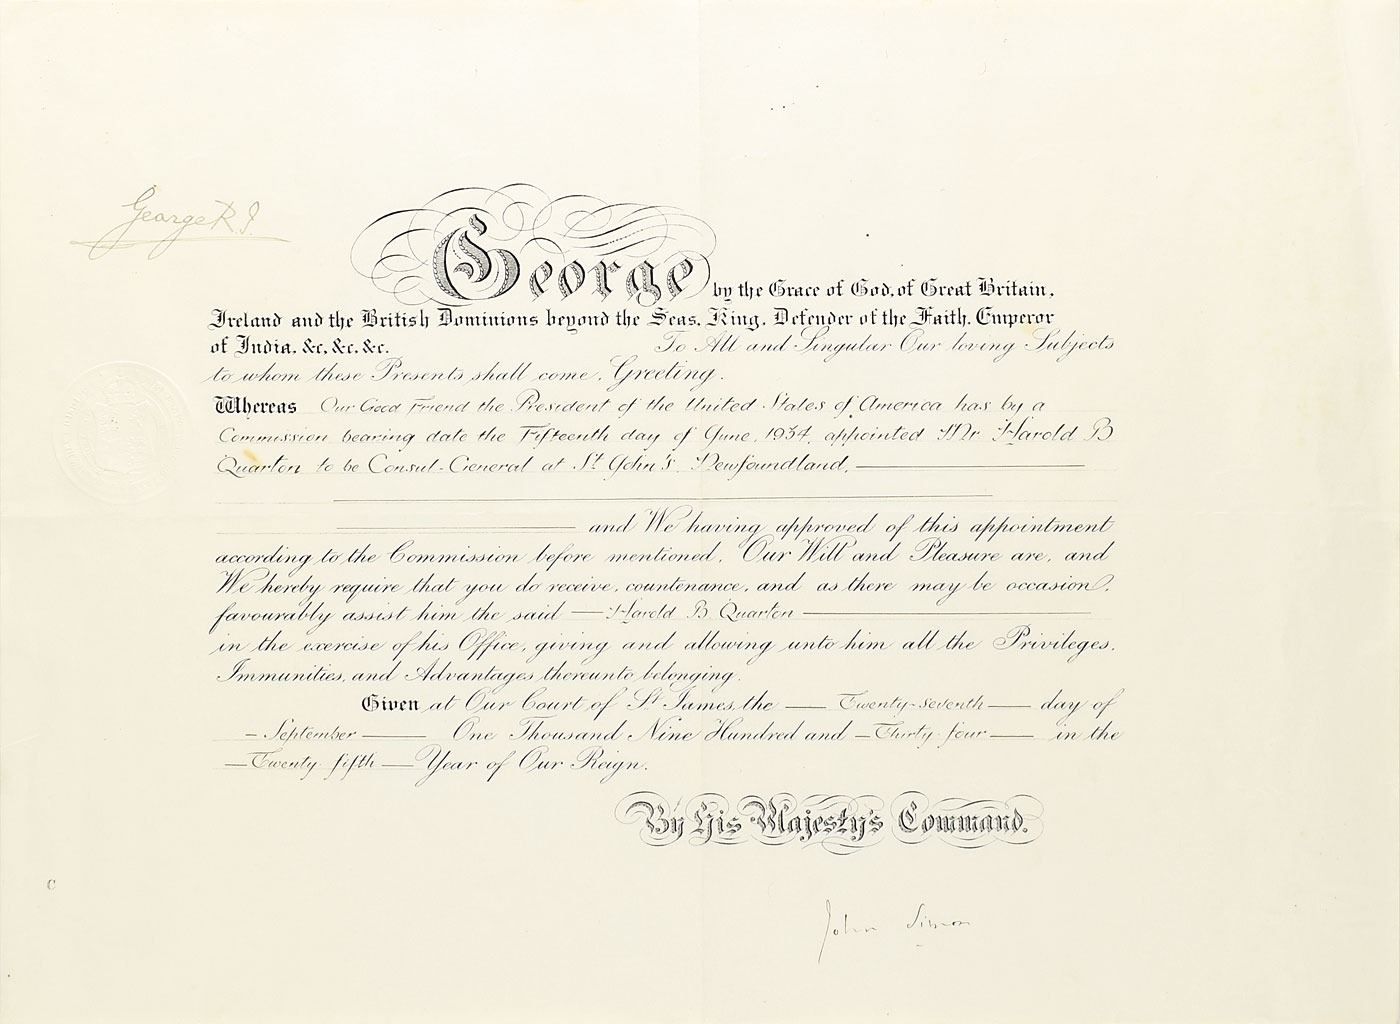 George R.I.
George by the Grace of God, of Great Britain,
Ireland and the British Dominions beyond the Seas, King, Defender of the Faith, Emperor
of India, &c, &c, &c. To All and Singular Our loving Subjects
to whom these Presents shall come, Greeting.
Whereas Our Good Friend the President of the United States of America has by a
Commission bearing date the Fifteenth day of June, 1934, appointed Mr Harold B
Quarton to be Consul-General at St John's, Newfoundland,
and We having approved of this appointment
according to the Commission before mentioned, Our Will and Pleasure are, and
We hereby require that you do receive, countenance, and as there may be occasion,
favourably assist him the said — Harold B Quarton —
in the exercise of his Office, giving and allowing unto him all the Privileges,
Immunities, and Advantages thereunto belonging.
Given at Our Court of St James, the — Twenty-seventh — day of
— September — One Thousand Nine Hundred and — Thirty-four — in the
— Twenty-fifth — Year of Our Reign.
By His Majesty's Command.
C
John Simon